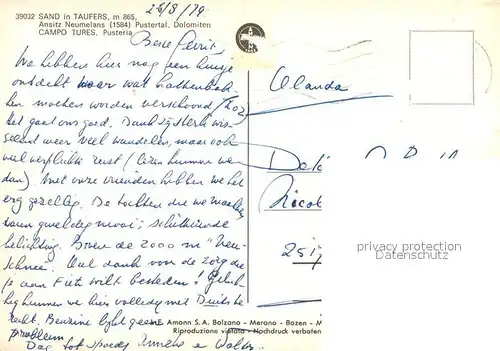 39032 SAND in TAUFERS, m 865,
Ansitz Neumelans (1584) Pustertal, Dolomiten
CAMPO TURES, Pusteria
26/8/79
Beste Gerrit,
We hebben hier nog een huisje
ontdekt waar wat
mochten worden verschoond
het gaat ons goed. Dank zij sterk wis-
weer veel wandelen, maar ook
veel verplichte rust (lezen kunnen we
dan). Met onze vrienden hebben we het
erg gezellig. De tochten die we maakten
waren geweldig mooi; schitterende
belichting. Boven de 2000 m "Neu-
schnee". Veel dank voor de zorg die
je aan Fiets wilt besteden! Geluk-
kig kunnen we hier volledig met Duits te-
recht. Benzine lijkt geen
probleem.
Dag tot spoedig Anneke e Wolb.
Olanda
Nicol
251
privacy protection
Datenschutz
Amann S.A. Bolzano - Merano - Bozen - M
Riproduzione vietata - Nachdruck verboten